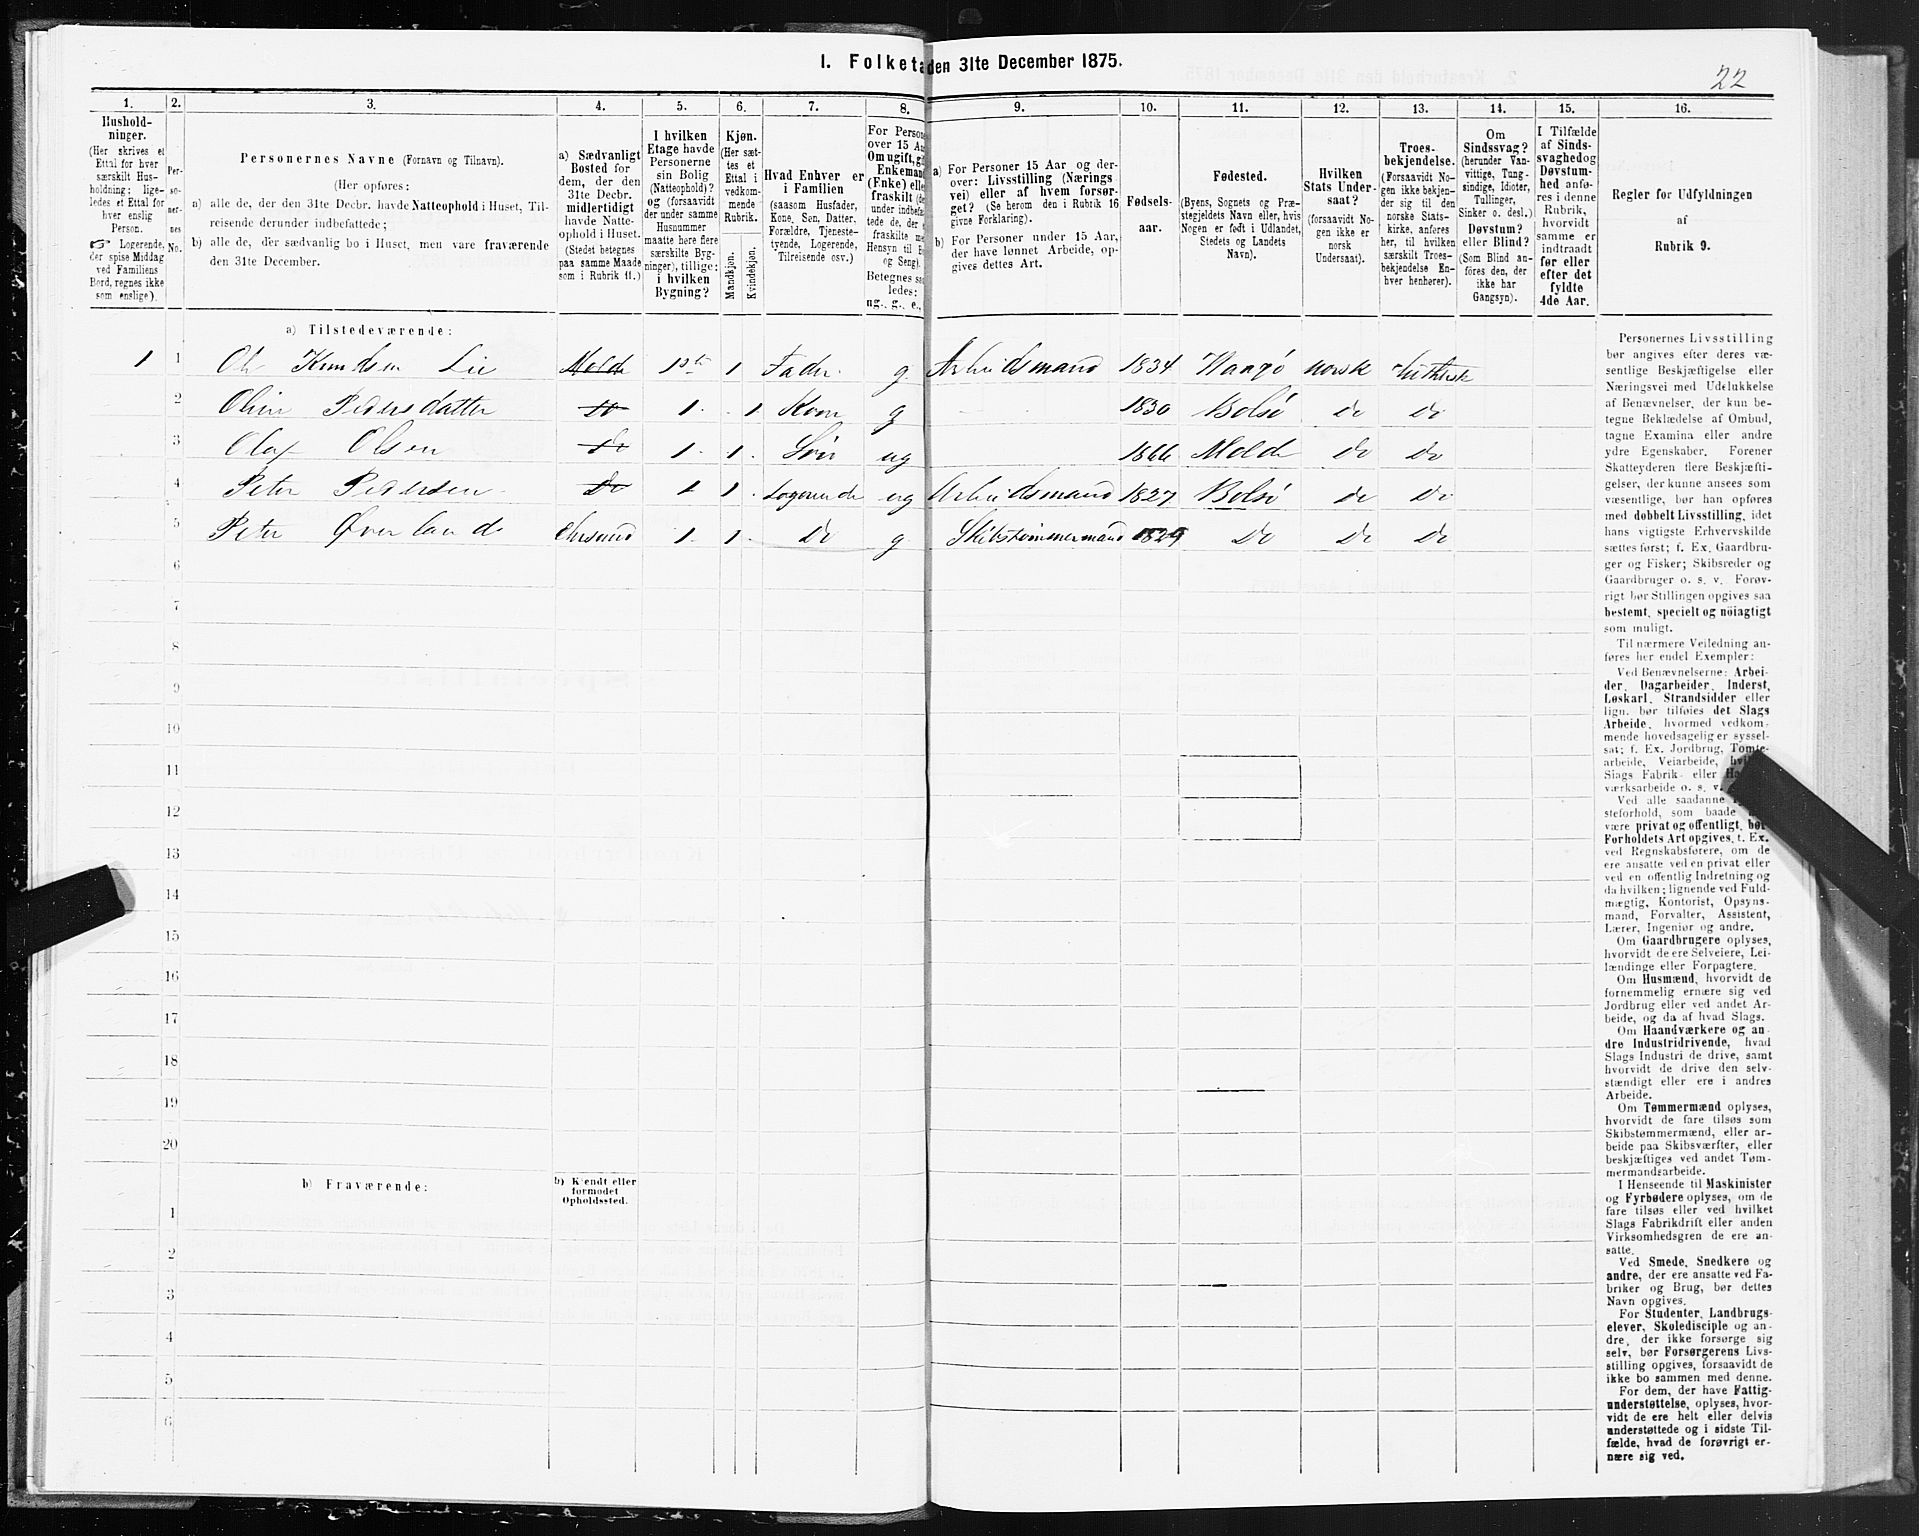 I. Folketa den 31te December 1875.
22
1. 2. 3. 4. 5. 6. 7. 8. 9. 10. 11. 12. 13. 14. 15. 16.
Hushold-
ninger.
(Her skrives et
Ettal for hver
særskilt Hus-
holdning; lige-
ledes et Ettal for
hver enslig
Person.
☞ Logerende,
der spise Middag
ved Familiens
Bord, regnes ikke
som enslige).
Per-
so-
ner-
nes
No.
Personernes Navne (Fornavn og Tilnavn).
(Her opføres:
a) alle de, der den 31te Decbr. havde Natteophold i Huset, Til-
reisende derunder indbefattede;
b) alle de, der sædvanlig bo i Huset, men vare fraværende
den 31te December.
a) Sædvanligt
Bosted for
dem, der den
31te Decbr.
midlertidigt
havde Natte-
ophold i Huset.
(Stedet betegnes
paa samme Maade
som i Rubrik 11.)
I hvilken
Etage havde
Personerne
sin Bolig
(Natteophold)?
og (forsaavidt
der under samme
Husnummer
maatte høre flere
særskilte Byg-
ninger), tillige:
i hvilken
Bygning?
Kjøn.
(Her sæt-
tes et
Ettal i
vedkom-
mende
Rubrik.
Mandkjøn.
Kvindekjøn.
Hvad Enhver er
i Familien
(saasom Husfader,
Kone, Søn, Datter,
Forældre, Tjeneste-
tyende, Logerende,
Tilreisende osv.)
For Persone
over 15 Aa
Om ugift, gi
Enkeman
(Enke) elle
fraskilt (de
under indbe
tede de, der e
fraskilte me
Hensyn til B
og Seng).
Betegnes sa
ledes:
ug., g., e.,
a) For Personer 15 Aar og der-
over: Livsstilling (Nærings
vei) eller af hvem forsør-
get? (Se herom den i Rubrik 16
givne Forklaring).
b) For Personer under 15 Aar,
der have lønnet Arbeide, op-
gives dettes Art.
Fødsels-
aar.
Fødested.
(Byens, Sognets og Præ-
stegjeldets Navn eller, hvis
Nogen er født i Udlandet,
Stedets og Landets
Navn).
Hvilken
Stats Under-
saat?
(forsaavidt No-
gen ikke er
norsk
Undersaat).
Troes-
bekjendelse.
(Forsaavidt No-
gen ikke bekjen-
der sig til den
norske Stats-
kirke, anføres
her, til hvilken
særskilt Troes-
bekjendelse En-
hver henhører).
Om
Sindssvag?
(herunder Van-
vittige, Tung-
sindige, Idioter,
Tullinger,
Sinker o. desl.)
Døvstum?
eller Blind?
(Som Blind an-
føres den, der
ikke har
Gangsyn).
I Tilfælde
af Sinds-
svaghedog
Døvstum-
hed anfø-
res i denne
Rubrik,
hvorvidt
samme er
indtraadt
før eller
efter det
fyldte
4de Aar.
Regler for Udfyldningen
af
Rubrik 9.
a) Tilstedeværende:
1 1 Ole Knudsen Lie Molde 1ste 1 Fader g Arbeidsmand 1834 norsk Luthersk
2 Oline Pedersdatter Do 1 1 Kone g 1830 Bolsø Do Do
3 Olaf Olsen Do 1 1 Søn ug 1866 Molde Do Do
4 Peter Pedersen Do 1 1 Logerende ug Arbeidsmand 1827 Bolsø Do Do
5 Peter Øverlande Chrsund 1 1 Do g Skibstømmermand 1829 Do Do Do
6
7
8
9
10
11
12
13
14
15
16
17
18
19
20
b) Fraværende:
b) Kjendt eller
formodet
Opholdssted.
1
2
3
4
5
6
Personernes Livsstilling
bør angives efter deres væ-
sentlige Beskjæftigelse eller
Næringsvei med Udelukkelse
af Benævnelser, der kun be-
tegne Beklædelse af Ombud,
tagne Examina eller andre
ydre Egenskaber. Forener
Skatteyderen flere Beskjæfti-
gelser, der kunne ansees som
væsentlige, bør han opføres
med dobbelt Livsstilling, idet
hans vigtigste Erhvervskilde
sættes først; f. Ex. Gaardbru-
ger og Fisker; Skibsreder og
Gaardbruger o. s. v. Forøv-
rigt bør Stillingen opgives saa
bestemt, specielt og nöiagtigt
som muligt.
Til nærmere Veiledning an-
føres her endel Exempler:
Ved Benævnelserne: Arbei-
der, Dagarbeider, Inderst,
Løskarl, Strandsidder eller
lign. bør tilføies det Slags
Arbeide, hvormed vedkom-
mende hovedsagelig er syssel-
sat; f. Ex. Jordbrug, Tomte-
arbeide, Veiarbeide, hvil
Slags Fabrik- eller Ha
værksarbeide o. s. v.
Ved alle saadanne
steforhold, som baade
være privat og offentligt, bør
Forholdets Art opgives, t. Ex.
ved Regnskabsførere, om de
ere ansatte ved en privat eller
ved en offentlig Indretning og
da hvilken; lignende ved Fuld-
mægtig, Kontorist, Opsyns-
mand, Forvalter, Assistent,
Lærer, Ingeniør og andre.
Om Gaardbrugere oplyses,
hvorvidt de ere Selveiere, Lei-
lændinge eller Forpagtere.
Om Husmænd, hvorvidt de
fornemmelig ernære sig ved
Jordbrug eller ved andet Ar-
beide, og da af hvad Slags.
Om Haandværkere og an-
dre Industridrivende, hvad
Slags Industri de drive, samt
hvorvidt de drive den selv-
stændigt eller ere i andres
Arbeide.
Om Tømmermænd oplyses,
hvorvidt de fare tilsøs som
Skibstømmermænd, eller ar-
beide paa Skibsværfter, eller
beskjæftiges ved andet Tøm-
mermandsarbeide.
I Henseende til Maskinister
og Fyrbødere oplyses, om de
fare tilsøs eller ved hvilket
Slags Fabrikdrift eller anden
Virksomhedsgren de ere an-
satte.
Ved Smede, Snedkere og
andre, der ere ansatte ved Fa-
briker og Brug, bør dettes
Navn opgives.
For Studenter, Landbrugs-
elever, Skoledisciple og an-
dre, der ikke forsørge sig
selv, bør Forsørgerens Livs-
stilling opgives, forsaavidt de
ikke bo sammen med denne.
For dem, der have Fattig-
understøttelse, oplyses, hvor-
vidt de ere helt eller delvis
understøttede og i sidste Til-
fælde, hvad de forøvrigt er-
nære sig ved.